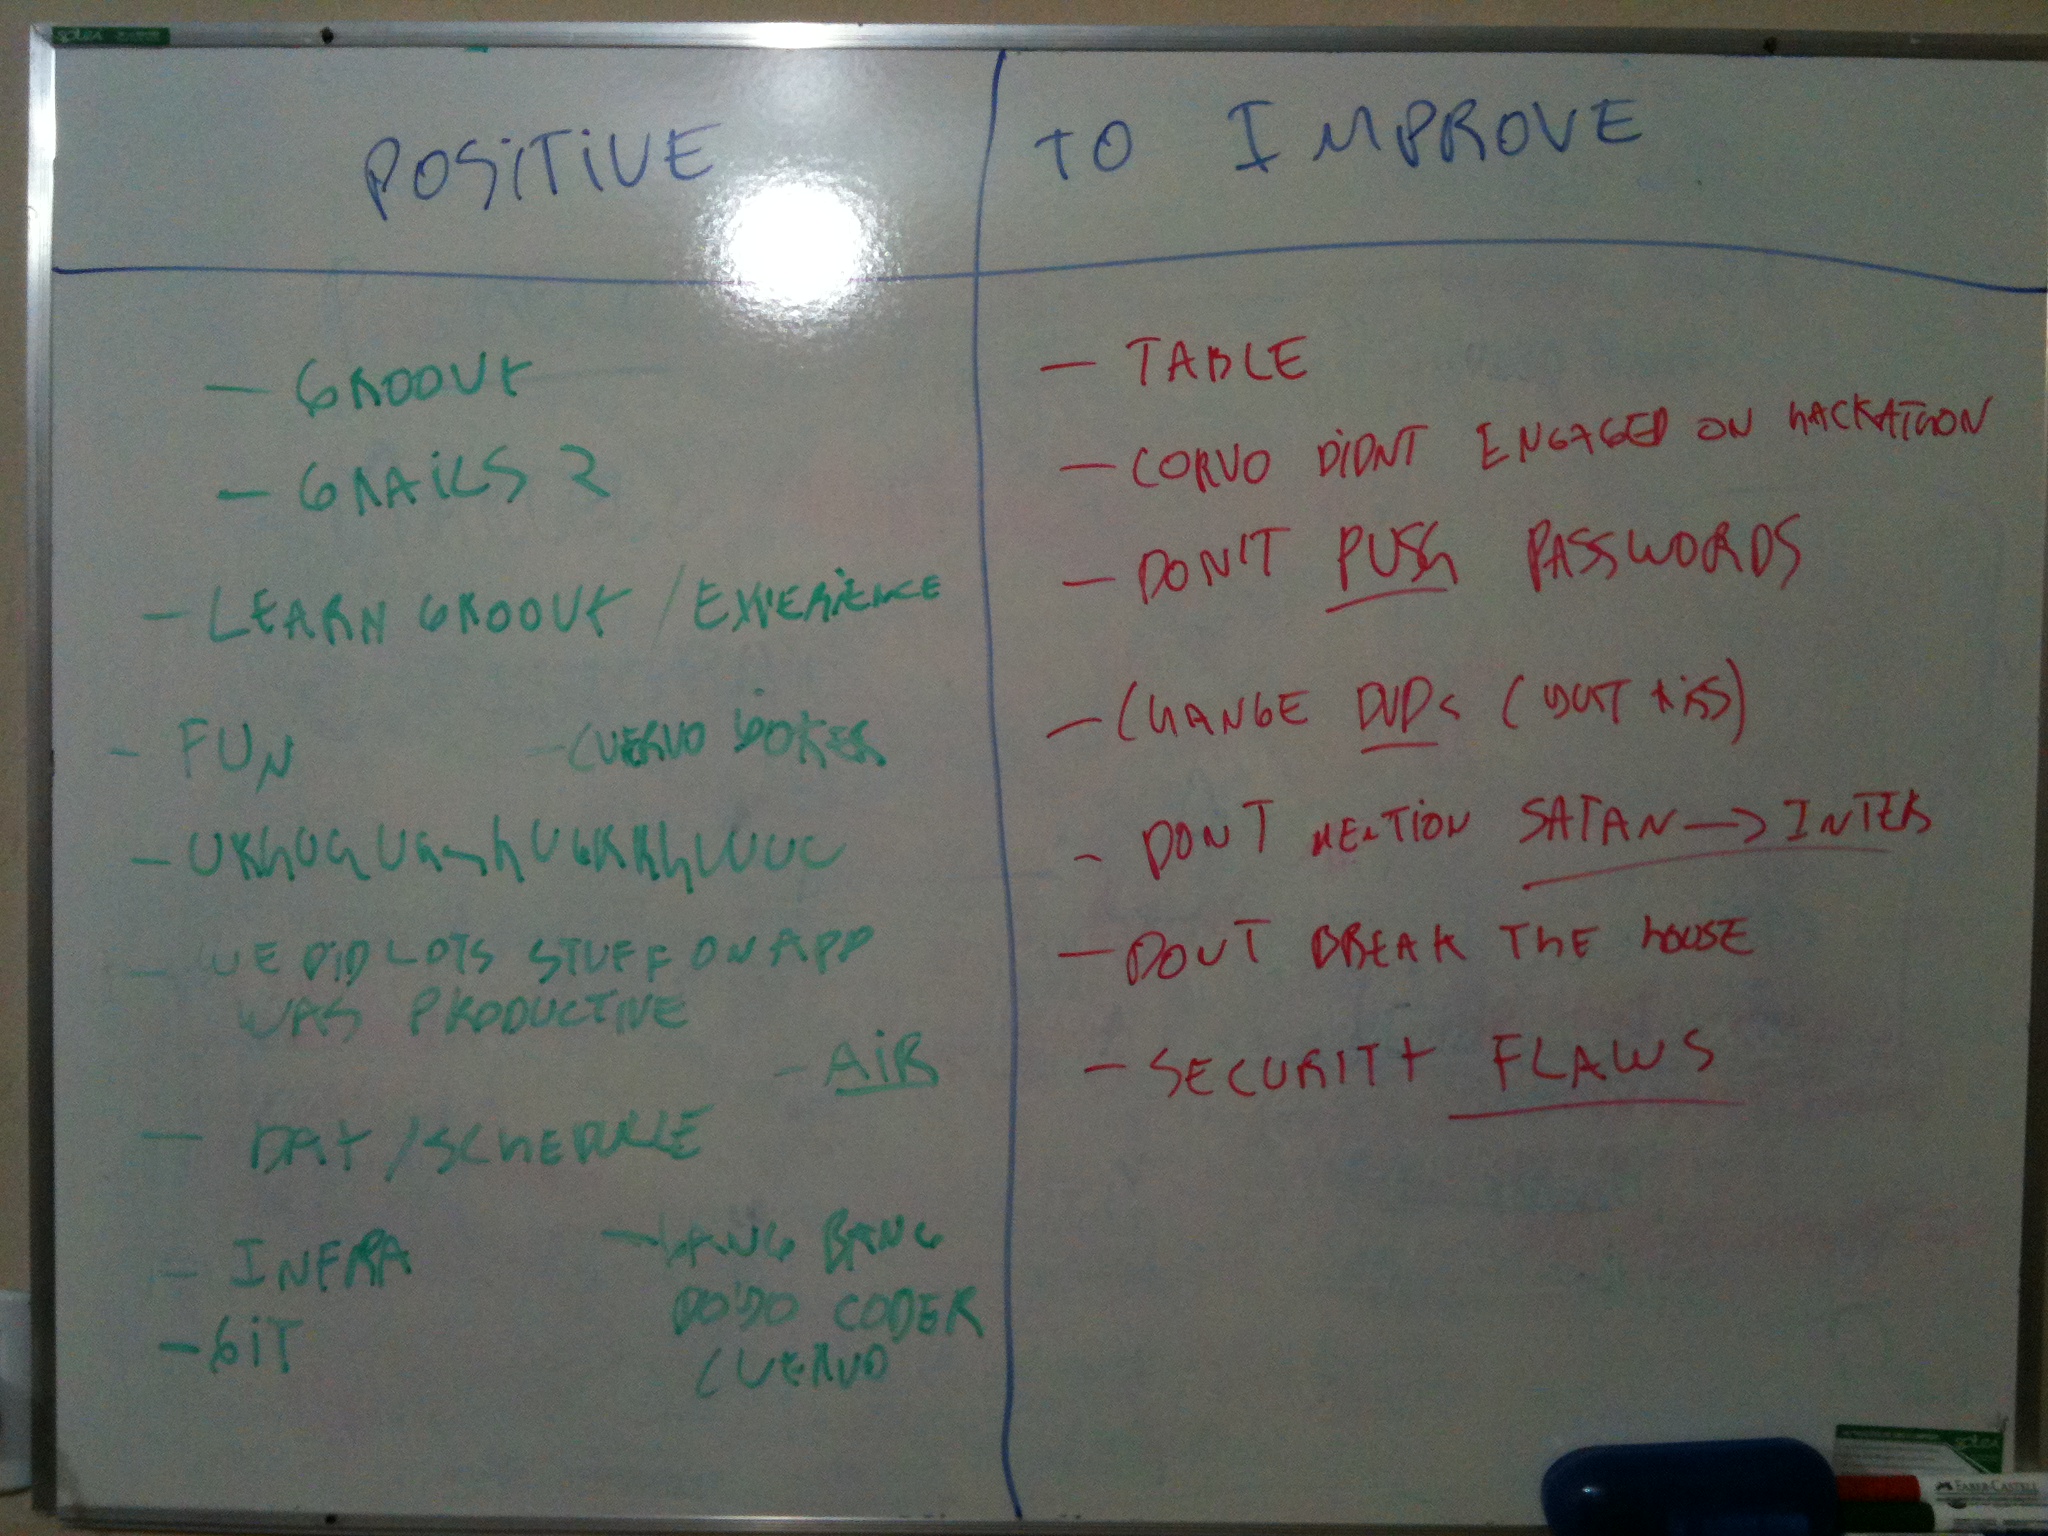 POSITIVE
TO IMPROVE
- GROOVY
- GRAILS 2
- LEARN GROOVY / EXPERIENCE
- FUN
- CUERVO JOKER
- WE DID LOTS STUFF ON APP
WAS PRODUCTIVE
- AIR
- DAY / SCHEDULE
- INFRA
- GIT
- GANG BANG
CODER
CUERVO
- TABLE
- CORVO DIDNT ENGAGED ON HACKATHON
- DON'T PUSH PASSWORDS
- CHANGE DVDs (
- DONT MENTION SATAN -> INTER
- DONT BREAK THE HOUSE
- SECURITY FLAWS
solex
FABER-CASTELL